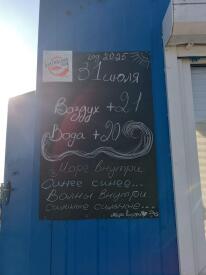 31 июля
Воздух +21
Вода +20
Море внутри
Синее синее...
Волны внутри
сильные сильные...